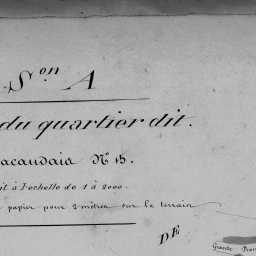 Son A
du quartier dit.
acaudaia No 15.
it à l'echelle de 1 à 2000.
papier pour 2 mètres sur le terrain
DE
Grande Rou